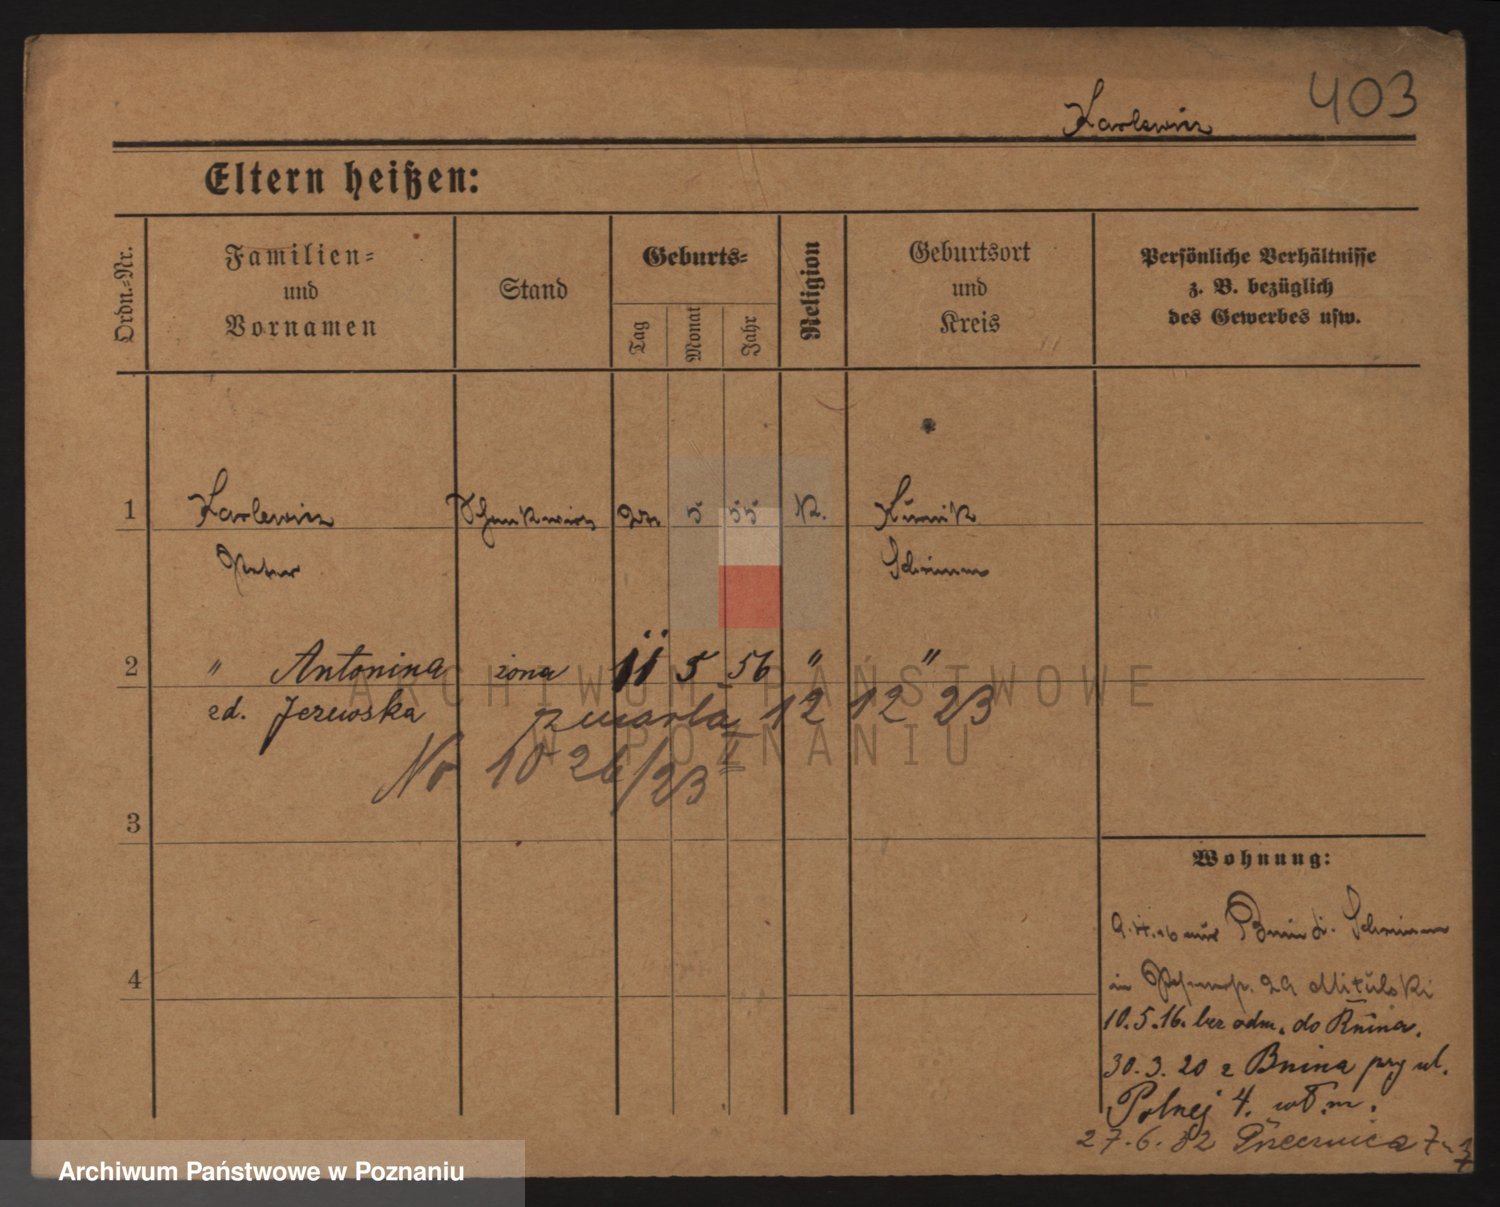 403
Karlewicz
Eltern heißen:
Ordn.-Nr.
Familien-
und
Vornamen
Stand
Geburts-
Tag
Monat
Jahr
Religion
Geburtsort
und
Kreis
Persönliche Verhältnisse
z. B. bezüglich
des Gewerbes usw.
1 Karlewicz 5 55 K. Kurnik
Peter Schrimm
2 " Antonina żona 11 5 56 " "
zd. Jezewska zmarła 12 12 23
No 10 26/23
3
4
Wohnung:
Bnin Schrimm
in 29 Mitulski
10.5.16. bez odm. do Bnina.
30.3.20 z Bnina przy ul.
Polnej 4.
27.6.
ARCHIWUM PAŃSTWOWE
W POZNANIU
Archiwum Państwowe w Poznaniu